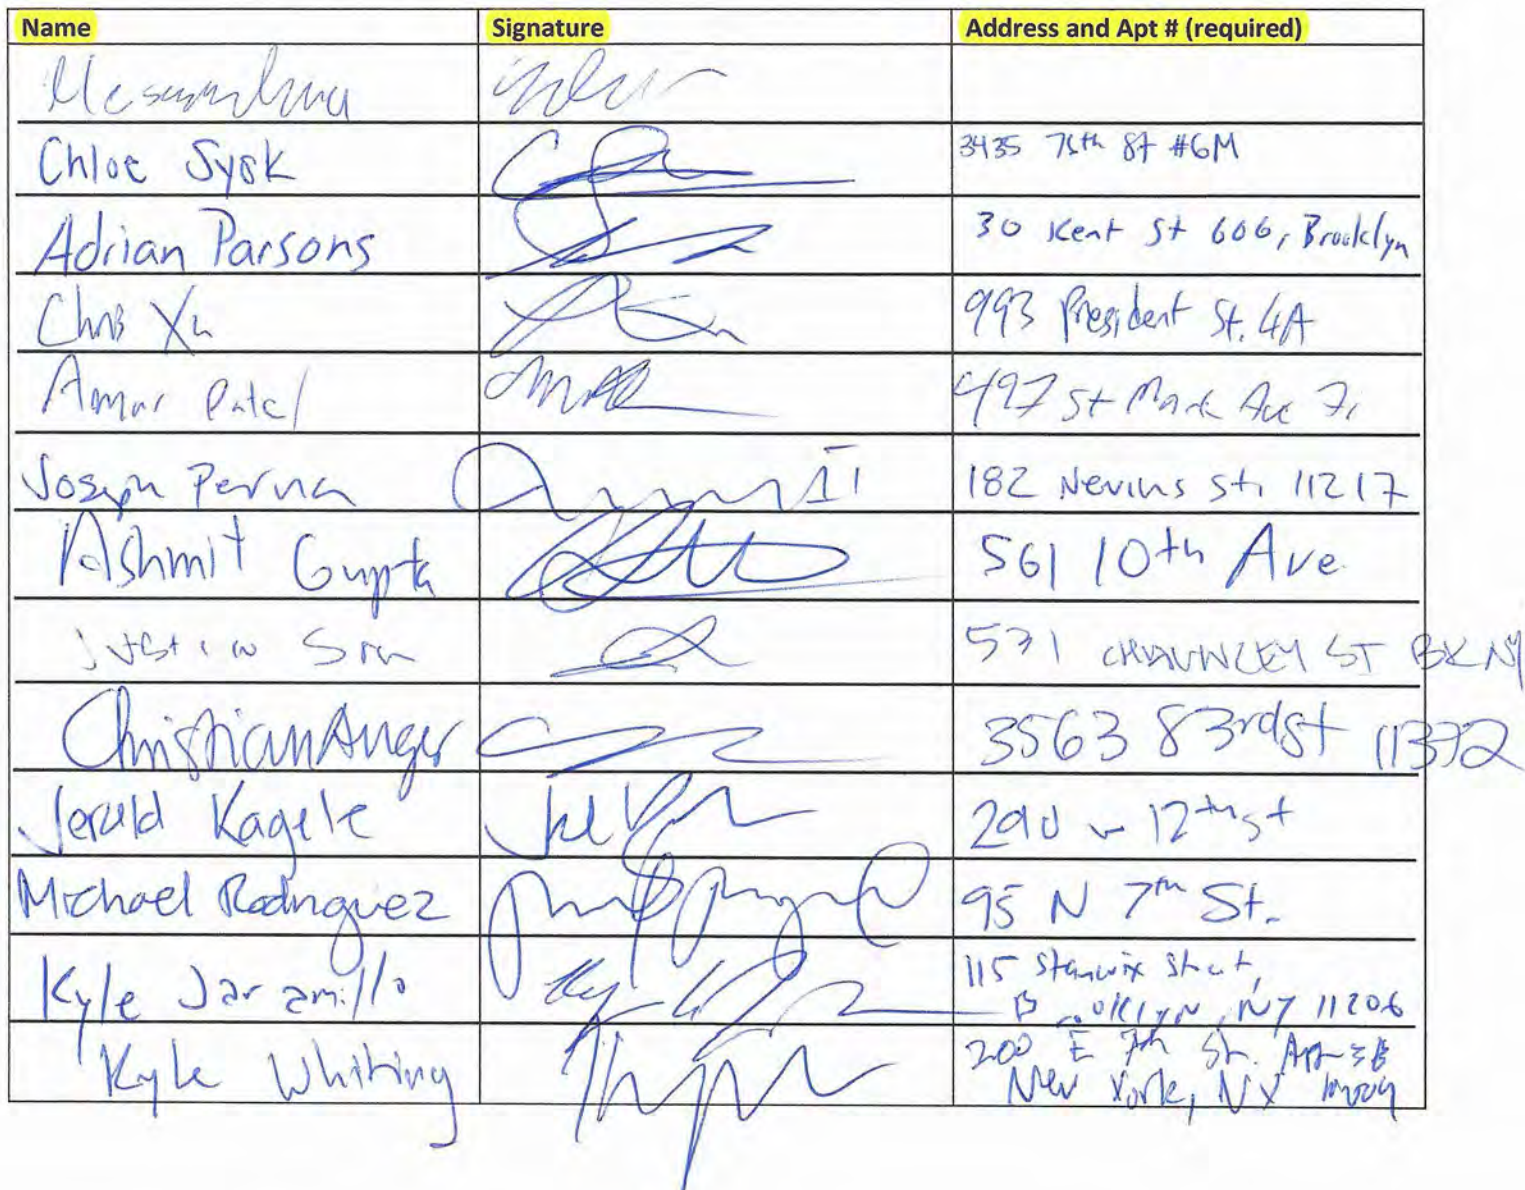 Name Signature Address and Apt # (required)
Chloe Sysk 3435 75th St #6M
Adrian Parsons 30 Kent St 606, Brooklyn
Chris Xu 993 President St. 4A
Amar Patel 497 St Mark Ave
Joseph Perna II 182 Nevins St. 11217
Ashmit Gupta 561 10th Ave
Justin 531 CHAUNCEY ST BK NY
Christian Anger 3563 83rd St 11372
Jerald Kagele 290 W 12th St
Michael Rodriguez 95 N 7th St.
Kyle Jaramillo 115 Stanwix Street,
Brooklyn, NY 11206
Kyle Whiting 200 E 7th St. Apt 3B
New York, NY